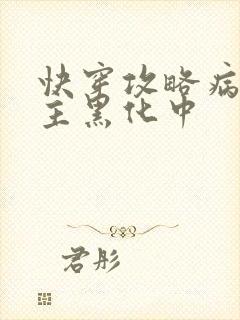 快穿攻略病
主黑化中
君彤